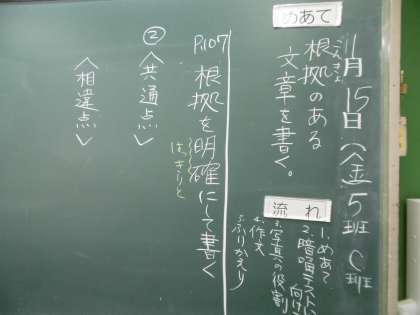 11月15日(金)5班C班
めあて
根拠のある
こんきょ
文章を書く。
流れ
1.めあて
2.暗唱テストに
向け
3.写真の役割
4.作文
5.ふりかえり
P.107 根拠を明確にして書く
はっきりと
②〈共通点〉
〈相違点〉